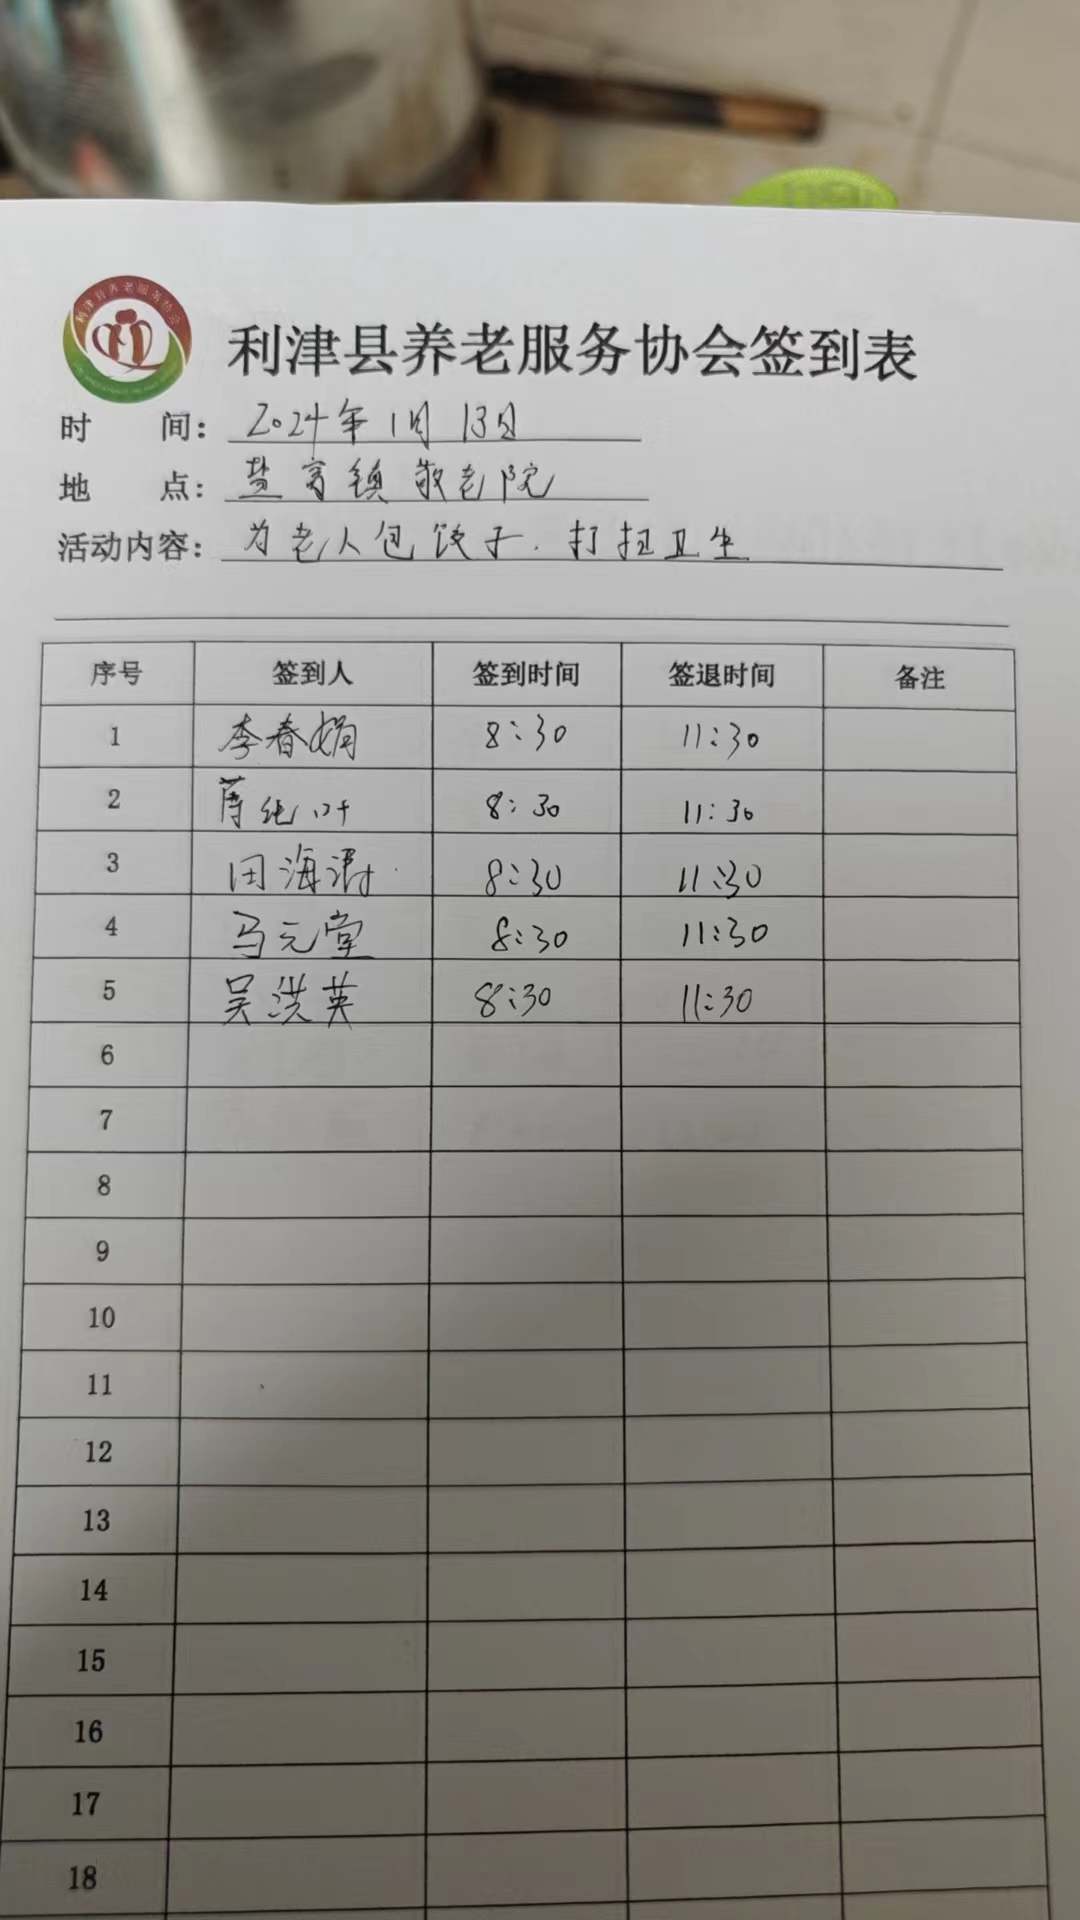 利津县养老服务协会
利津县养老服务协会签到表
时 间： 2024年1月13日
地 点： 盐窝镇敬老院
活动内容： 为老人包饺子．打扫卫生
序号 签到人 签到时间 签退时间 备注
1 李春娟 8:30 11:30
2 叶 8:30 11:30
3 田海涛 8:30 11:30
4 马元堂 8:30 11:30
5 吴洪英 8:30 11:30
6
7
8
9
10
11
12
13
14
15
16
17
18